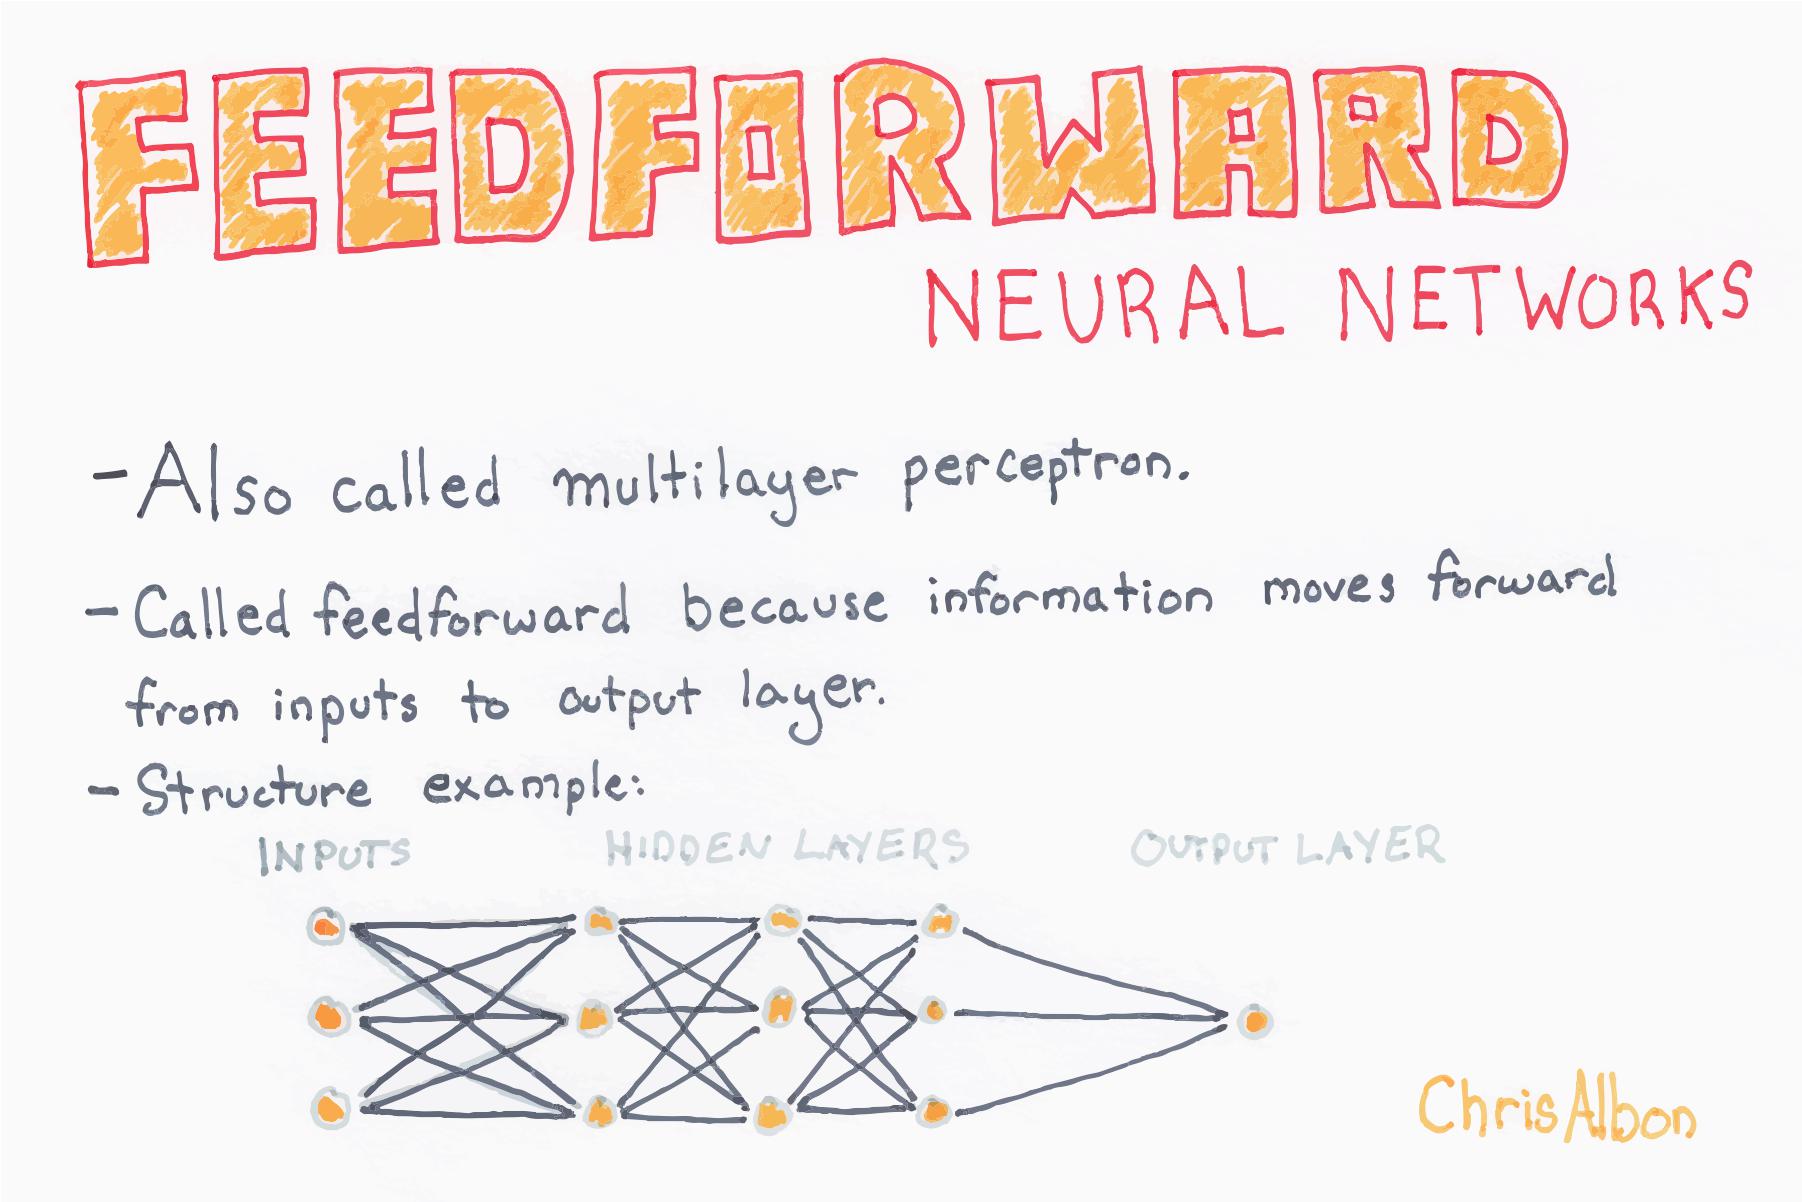 FEEDFORWARD
NEURAL NETWORKS
- Also called multilayer perceptron.
- Called feedforward because information moves forward
from inputs to output layer.
- Structure example:
INPUTS HIDDEN LAYERS OUTPUT LAYER
Chris Albon